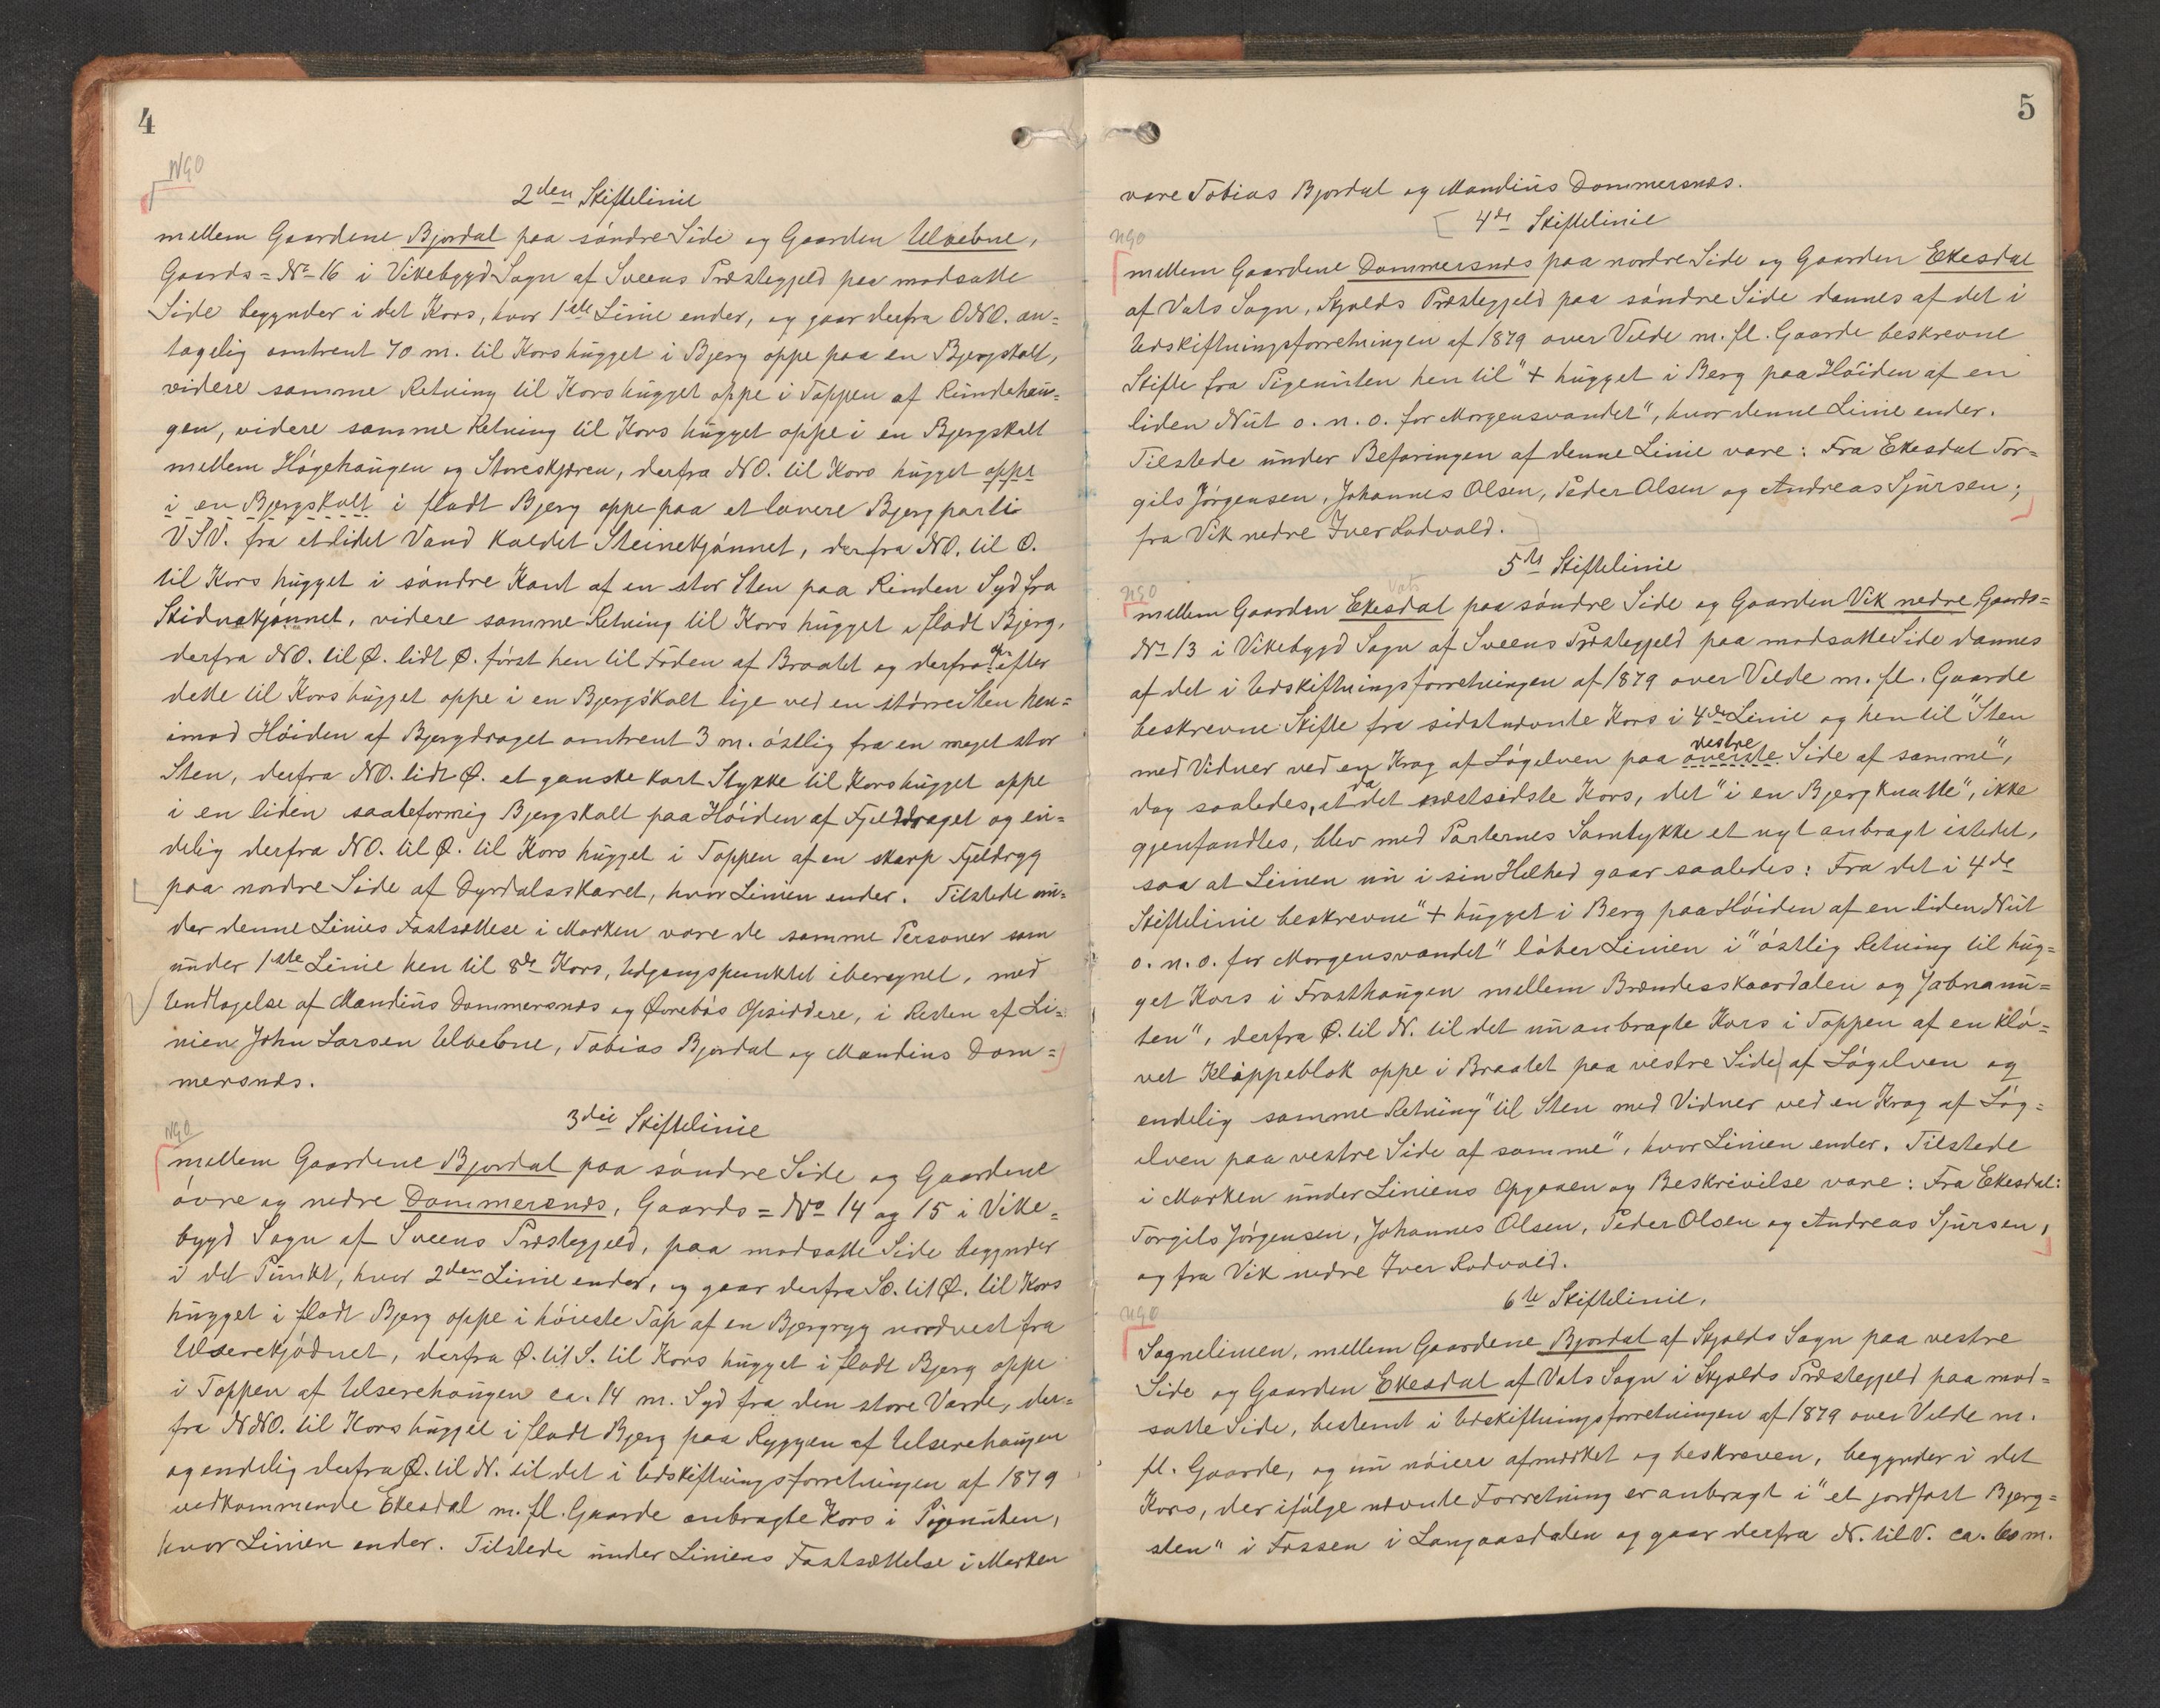 4
NGO
2den Skiftelinie
mellem Gaardene Bjordal paa søndre Side og Gaarden Ulvebne,
Gaards=No 16 i Vikebygd Sogn af Sveens Præstegjeld paa modsatte
Side begynder i det Kors, hvor 1ste Linie ender, og gaar derfra ONO. an=
tagelig omtrent 70 m. til Kors hugget i Bjerg oppe paa en Bjergskalt,
videre samme Retning til Kors hugget oppe i Toppen af Rundehau=
gen, videre samme Retning til Kors hugget oppe i en Bjergskalt
mellem Høgehaugen og Storeskjæren, derfra NO. til Kors hugget oppe
i en Bjergskalt i fladt Bjerg oppe paa et lavere Bjergparti
VSV. fra et lidet Vand kaldet Steinekjønnet, derfra NO. til O.
til Kors hugget i søndre Kant af en stor Sten paa Rinden Syd fra
Skidnakjønnet, videre samme Retning til Kors hugget i fladt Bjerg,
derfra NO. til Ø. lidt Ø. først hen til Foden af Braatet og derfra op efter
dette til Kors hugget oppe i en Bjergskalt lige ved en større Sten hen=
imod Høiden af Bjergdraget omtrent 3 m. østlig fra en meget stor
Sten, derfra NO. lidt Ø. et ganske kort Stykke til Kors hugget oppe
i en liden saateformig Bjergskalt paa Høiden af Fjelddraget og en=
delig derfra NO. til Ø. til Kors hugget i Toppen af en skarp Fjeldryg
paa nordre Side af Dyrdalsskaret, hvor Linien ender. Tilstede un=
der denne Linies Fastsættese i Marken vare de samme Personer som
under 1ste Linie hen til 8de Kors, Udgangspunktet iberegnet, med
Undtagelse af Mandius Dommersnæs og Øvrebøs Opsiddere, i Resten af Li=
nien John Larsen Ulvebne, Tobias Bjordal og Mandius Dom=
mersnæs.
NGO
3die Skiftelinie
mellem Gaardene Bjordal paa søndre Side og Gaardene
øvre og nedre Dommersnæs, Gaards=No 14 og 15 i Vike=
bygd Sogn af Sveens Præstegjeld, paa modsatte Side begynder
i det Punkt, hvor 2den Linie ender, og gaar derfra SO. til Ø. til Kors
hugget i fladt Bjerg oppe i høieste Top af en Bjergryg nordvest fra
Ulserekjødnet, derfra Ø. til S. til Kors hugget i fladt Bjerg oppe
i Toppen af Ulserehaugen ca. 14 m. Syd fra den store Varde, der=
fra NNO. til Kors hugget i fladt Bjerg paa Ryggen af Ulserehaugen
og endelig derfra Ø. til N. til det i Udskiftningsforretningen af 1879
vedkommende Ekesdal m. fl. Gaarde anbragte Kors i Pigenuten,
hvor Linien ender. Tilstede under Liniens Fastsættelse i Marken
5
vare Tobias Bjordal og Mandius Dommersnæs.
4de Skiftelinie
NGO
mellem Gaardene Dommersnæs paa nordre Side og Gaarden Ekesdal
af Vats Sogn, Skjolds Præstegjeld paa søndre Side dannes af det i
Udskiftningsforretningen af 1879 over Velde m. fl. Gaarde beskrevne
Skifte fra Pigenuten hen til "+ hugget i Berg paa Høiden af en
liden Nut o. n. o. for Morgensvandet", hvor denne Linie ender.
Tilstede under Befaringen af denne Linie vare: Fra Ekesdal Tor=
gils Jørgensen, Johannes Olsen, Peder Olsen og Andreas Sjursen;
fra Vik nedre Iver Rodvald.
5te Skiftelinie
NGO
Vats
mellem Gaarden Ekesdal paa søndre Side og Gaarden Vik nedre Gaards=
No 13 i Vikebygd Sogn af Sveens Præstegjeld paa modsatte Side dannes
af det i Udskiftningsforretningen af 1879 over Velde m. fl. Gaarde
beskrevne Skifte fra sidstnævnte Kors i 4de Linie og hen til "Sten
med Vidner ved en Krog af Løgelven paa øverste vestre Side af samme",
dog saaledes, at da det næstsidste Kors, det "i en Bjergknatte", ikke
gjenfandtes, blev med Parternes Samtykke et nyt anbragt istedet,
saa at Linien nu i sin Helhed gaar saaledes: Fra det i 4de
Skiftelinie beskrevne "+ hugget i Berg paa Høiden af en liden Nut
o. n. o. for Morgensvandet" løber Linien i "østlig Retning til hug=
get Kors i Frosthaugen mellem Brændesskaardalen og Jabnanu=
ten", derfra Ø. til N. til det nu anbragte Kors i Toppen af en klø=
vet Kloppeblok oppe i Braatet paa vestre Side af Løgelven og
endelig samme Retning "til Sten med Vidner ved en Krog af Løg=
elven paa vestre Side af samme", hvor Linien ender. Tilstede
i Marken under Liniens Opgaaen og Beskrivilse vare: Fra Ekesdal:
Torgils Jørgensen, Johannes Olsen, Peder Olsen og Andreas Sjursen,
og fra Vik nedre Iver Rodvold.
6te Skiftelinie,
NGO
Sognelinien, mellem Gaardene Bjordal af Skjolds Sogn paa vestre
Side og Gaarden Ekesdal af Vats Sogn i Skjolds Præstegjeld paa mod=
satte Side, bestemt i Udskiftningsforretningen af 1879 over Velde m.
fl. Gaarde, og nu nøiere afmærket og beskreven, begynder i det
Kors, der ifølge nævnte Forretning er anbragt i "et jordfast Bjerg=
sten" i Fossen i Langaasdalen og gaar derfra N. til V. ca. 60 m.